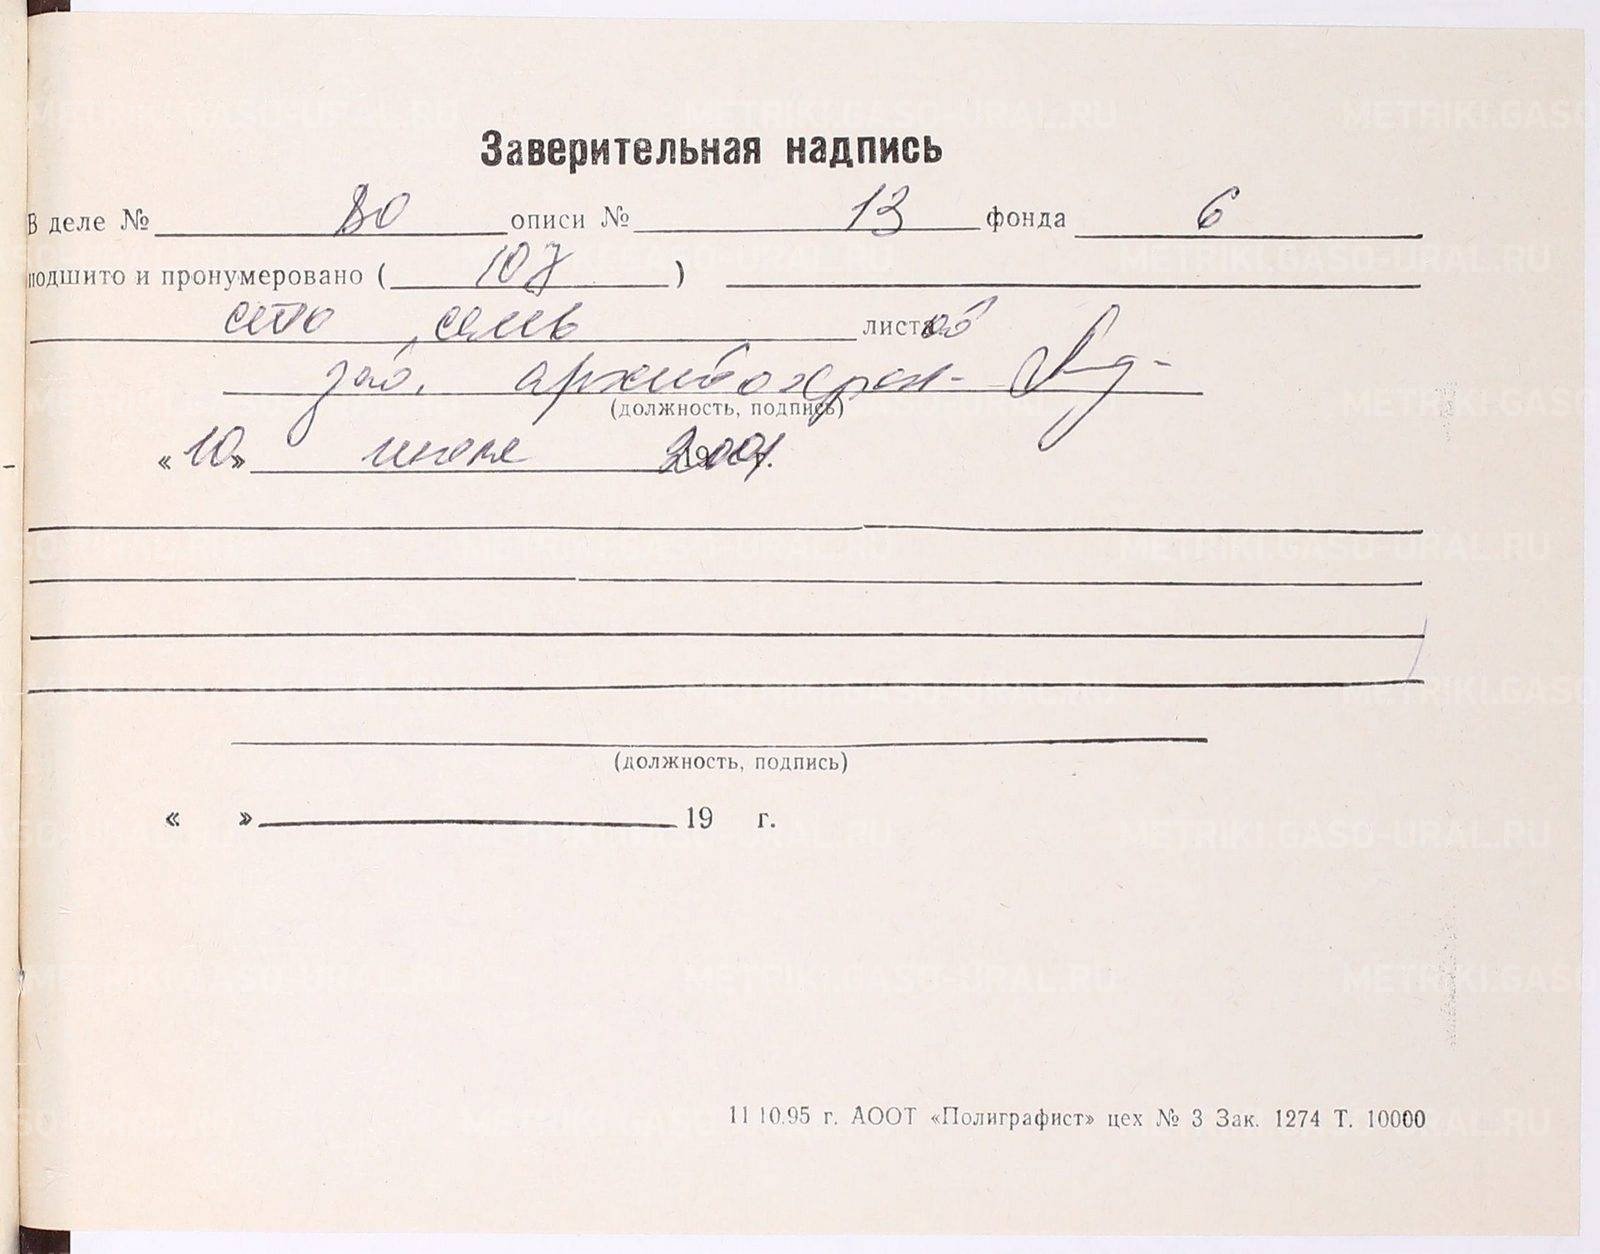 Заверительная надпись
В деле № 80 описи № 13 фонда 6
подшито и пронумеровано ( 107 )
сто семь листов
зав. архивохран-
(должность, подпись)
« 10 » июля 2001 г.
(должность, подпись)
« » 19 г.
11 10.95 г. АООТ «Полиграфист» цех № 3 Зак. 1274 Т. 10000
METRIKI.GASO-URAL.RU